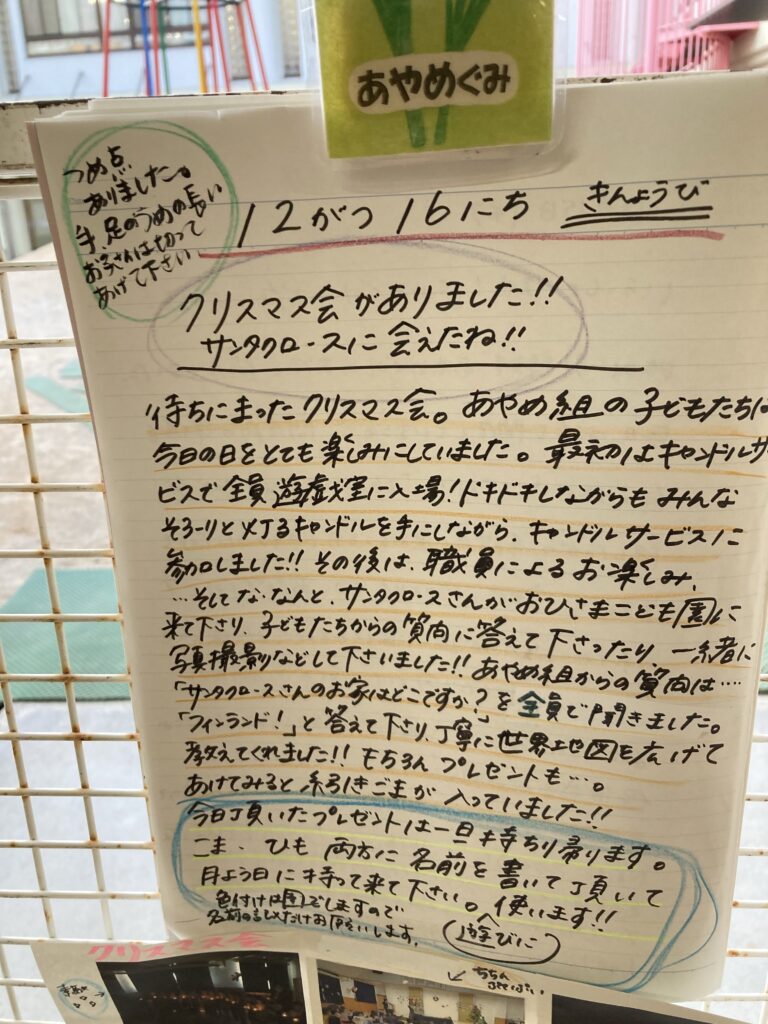 あやめぐみ
つめ点
ありました。
手、足のつめの長い
お子さんは切って
あげて下さい
12がつ 16にち きんようび
クリスマス会がありました!!
サンタクロースに 会えたね!!
待ちにまったクリスマス会。あやめ組の子どもたちは
今日の日をとても楽しみにしていました。最初はキャンドルサー
ビスで全員遊戯室に入場!ドキドキしながらも みんな
そろーりと灯るキャンドルを手にしながら、キャンドルサービスに
参加しました!!その後は、職員によるお楽しみ、
…そしてな・なんと、サンタクロースさんがおひさまこども園に
来て下さり、子どもたちからの質問に答えて下さったり、一緒に
写真撮影などして下さいました!!あやめ組からの質問は‥‥
「サンタクロースさんのお家はどこですか?」を全員で聞きました。
「フィンランド!」と答えて下さり、丁寧に世界地図を広げて
教えてくれました!!もちろんプレゼントも…。
あけてみると糸引きごまが 入っていました!!
今日頂いたプレゼントは一旦持ち帰ります。
こま、ひも 両方に 名前を書いて頂いて
月よう日に持って来て下さい。使います!!
色付けは園でしますので
名前の記入だけお願いします。
遊びに
クリスマス会